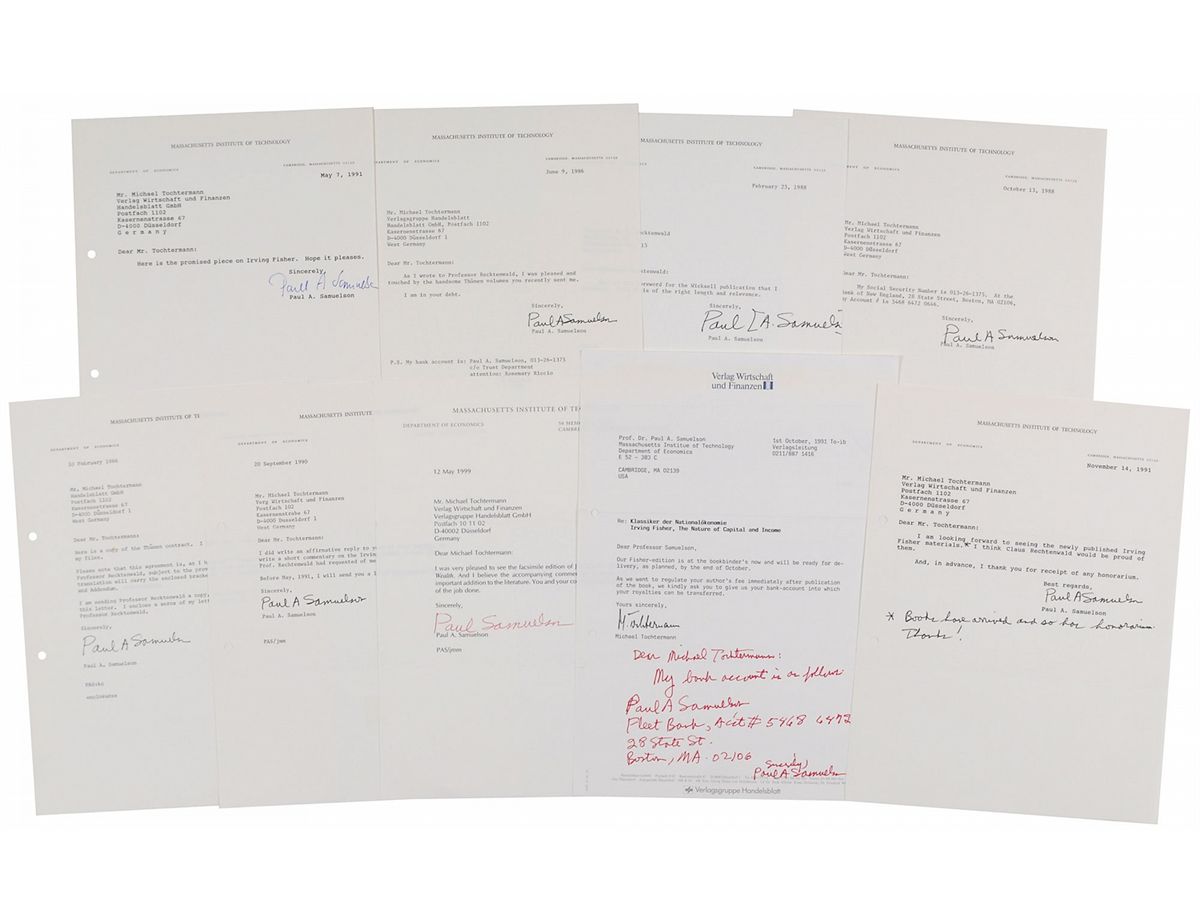 MASSACHUSETTS INSTITUTE OF TECHNOLOGY
DEPARTMENT OF ECONOMICS
CAMBRIDGE, MASSACHUSETTS 02139
May 7, 1991
Mr. Michael Tochtermann
Verlag Wirtschaft und Finanzen
Handelsblatt GmbH
Postfach 1102
Kasernenstrasse 67
D-4000 Düsseldorf
G e r m a n y
Dear Mr. Tochtermann:
Here is the promised piece on Irving Fisher. Hope it pleases.
Sincerely,
Paul A Samuelson
Paul A. Samuelson
MASSACHUSETTS INSTITUTE OF TECHNOLOGY
DEPARTMENT OF ECONOMICS
CAMBRIDGE, MASSACHUSETTS 02139
June 9, 1986
Mr. Michael Tochtermann
Verlagsgruppe Handelsblatt
Handelsblatt GmbH, Postfach 1102
Kasernenstrasse 67
D-4000 Düsseldorf 1
West Germany
Dear Mr. Tochtermann:
As I wrote to Professor Recktenwald, I was pleased and
touched by the handsome Thünen volumes you recently sent me.
I am in your debt.
Sincerely,
Paul A Samuelson
Paul A. Samuelson
P.S. My bank account is: Paul A. Samuelson, 013-26-1375
c/o Trust Department
attention: Rosemary Riccio
MASSACHUSETTS INSTITUTE OF TECHNOLOGY
CAMBRIDGE, MASSACHUSETTS 02139
February 23, 1988
cktenwald
ktenwald:
oreword for the Wicksell publication that I
is of the right length and relevance.
Sincerely,
Paul [A. Samuelson
Paul A. Samuelson
MASSACHUSETTS INSTITUTE OF TECHNOLOGY
MENT OF ECONOMICS
CAMBRIDGE, MASSACHUSETTS 02139
October 13, 1988
Mr. Michael Tochtermann
Verlag Wirtschaft und Finanzen
Postfach 1102
Kasernenstrasse 67
D-4000 Düsseldorf
West Germany
Dear Mr. Tochtermann:
My Social Security Number is 013-26-1375. At the
Bank of New England, 28 State Street, Boston, MA 02106,
my Account # is 5468 6472 0646.
Sincerely,
Paul A Samuelson
Paul A. Samuelson
MASSACHUSETTS INSTITUTE OF TE
DEPARTMENT OF ECONOMICS
February 1986
Mr. Michael Tochtermann
Handelsblatt GmbH
Postfach 1102
Kasernenstrasse 67
D-4000 Düsseldorf 1
West Germany
Dear Mr. Tochtermann:
Here is a copy of the Thünen contract. I
my files.
Please note that this agreement is, as I h
Professor Recktenwald, subject to the prov
translation will carry the enclosed bracke
and Addendum.
I am sending Professor Recktenwald a copy
this letter. I enclose a xerox of my lett
Professor Recktenwald.
Sincerely,
Paul A Samuelson
Paul A. Samuelson
enclosures
MASSACHUSETTS INSTITUTE
DEPARTMENT OF ECONOMICS
20 September 1990
Mr. Michael Tochtermann
Verg Wirtschaft und Finanzen
Handelsblatt GmbH
Postfach 1102
Kasernenstrasse 67
D-4000 Düsseldorf 1
West Germany
Dear Mr. Tochtermann:
I did write an affirmative reply to yo
write a short commentary on the Irving
Prof. Recktenwald had requested of me
Before May, 1991, I will send you a l
Sincerely,
Paul A Samuelson
Paul A. Samuelson
PAS/jmm
MASSACHUSETTS INSTITUTE OF TE
DEPARTMENT OF ECONOMICS
50 MEMO
CAMBRI
12 May 1999
Mr. Michael Tochtermann
Verlag Wirtschaft und Finanzen
Verlagsgruppe Handelsblatt GmbH
Postfach 10 11 02
D-40002 Düsseldorf
Germany
Dear Michael Tochtermann:
I was very pleased to see the facsimile edition of
Wealth. And I believe the accompanying comme
important addition to the literature. You and your co
of the job done.
Sincerely,
Paul Samuelson
Paul A. Samuelson
PAS/jmm
Verlag Wirtschaft
und Finanzen
Prof. Dr. Paul A. Samuelson
Massachusetts Institue of Technology
Department of Economics
E 52 - 383 C
CAMBRIDGE, MA 02139
USA
1st October, 1991 To-ib
Verlagsleitung
0211/887 1416
Re: Klassiker der Nationalökonomie
Irving Fisher, The Nature of Capital and Income
Dear Professor Samuelson,
Our Fisher-edition is at the bookbinder's now and will be ready for de-
livery, as planned, by the end of October.
As we want to regulate your author's fee immediately after publication
of the book, we kindly ask you to give us your bank-account into which
your royalties can be transferred.
Yours sincerely,
M. Tochtermann
Michael Tochtermann
Dear Michael Tochtermann:
My bank account is as follows
Paul A Samuelson
Fleet Bank, Acct # 5468 6472
28 State St.
Boston, MA. 02106
Sincerely,
Paul A Samuelson
Verlagsgruppe Handelsblatt
MASSACHUSETTS INSTITUTE OF TECHNOLOGY
DEPARTMENT OF ECONOMICS
CAMBRIDGE, MASSACHUSETTS 02139
November 14, 1991
Mr. Michael Tochtermann
Verlag Wirtschaft und Finanzen
Postfach 1102
Kasernenstrasse 67
D-4000 Düsseldorf
G e r m a n y
Dear Mr. Tochtermann:
I am looking forward to seeing the newly published Irving
Fisher materials.* I think Claus Rechtenwald would be proud of
them.
And, in advance, I thank you for receipt of any honorarium.
Best regards,
Paul A Samuelson
Paul A. Samuelson
* Books have arrived and so has honorarium.
Thanks!